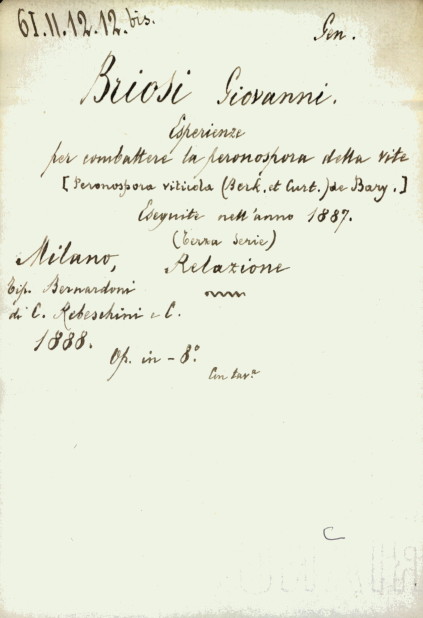 61.11.12.12.bis.
Gen.
Briosi Giovanni.
Esperienze
per combattere la peronospora della vite
[Peronospora viticola (Berk. et Curt.) de Bary.]
Eseguite nell'anno 1887.
(Terza serie)
Milano, Relazione
Tip. Bernardoni
di C. Rebeschini e C.
1888.
Op. in - 8.º
Con tav.ª
C